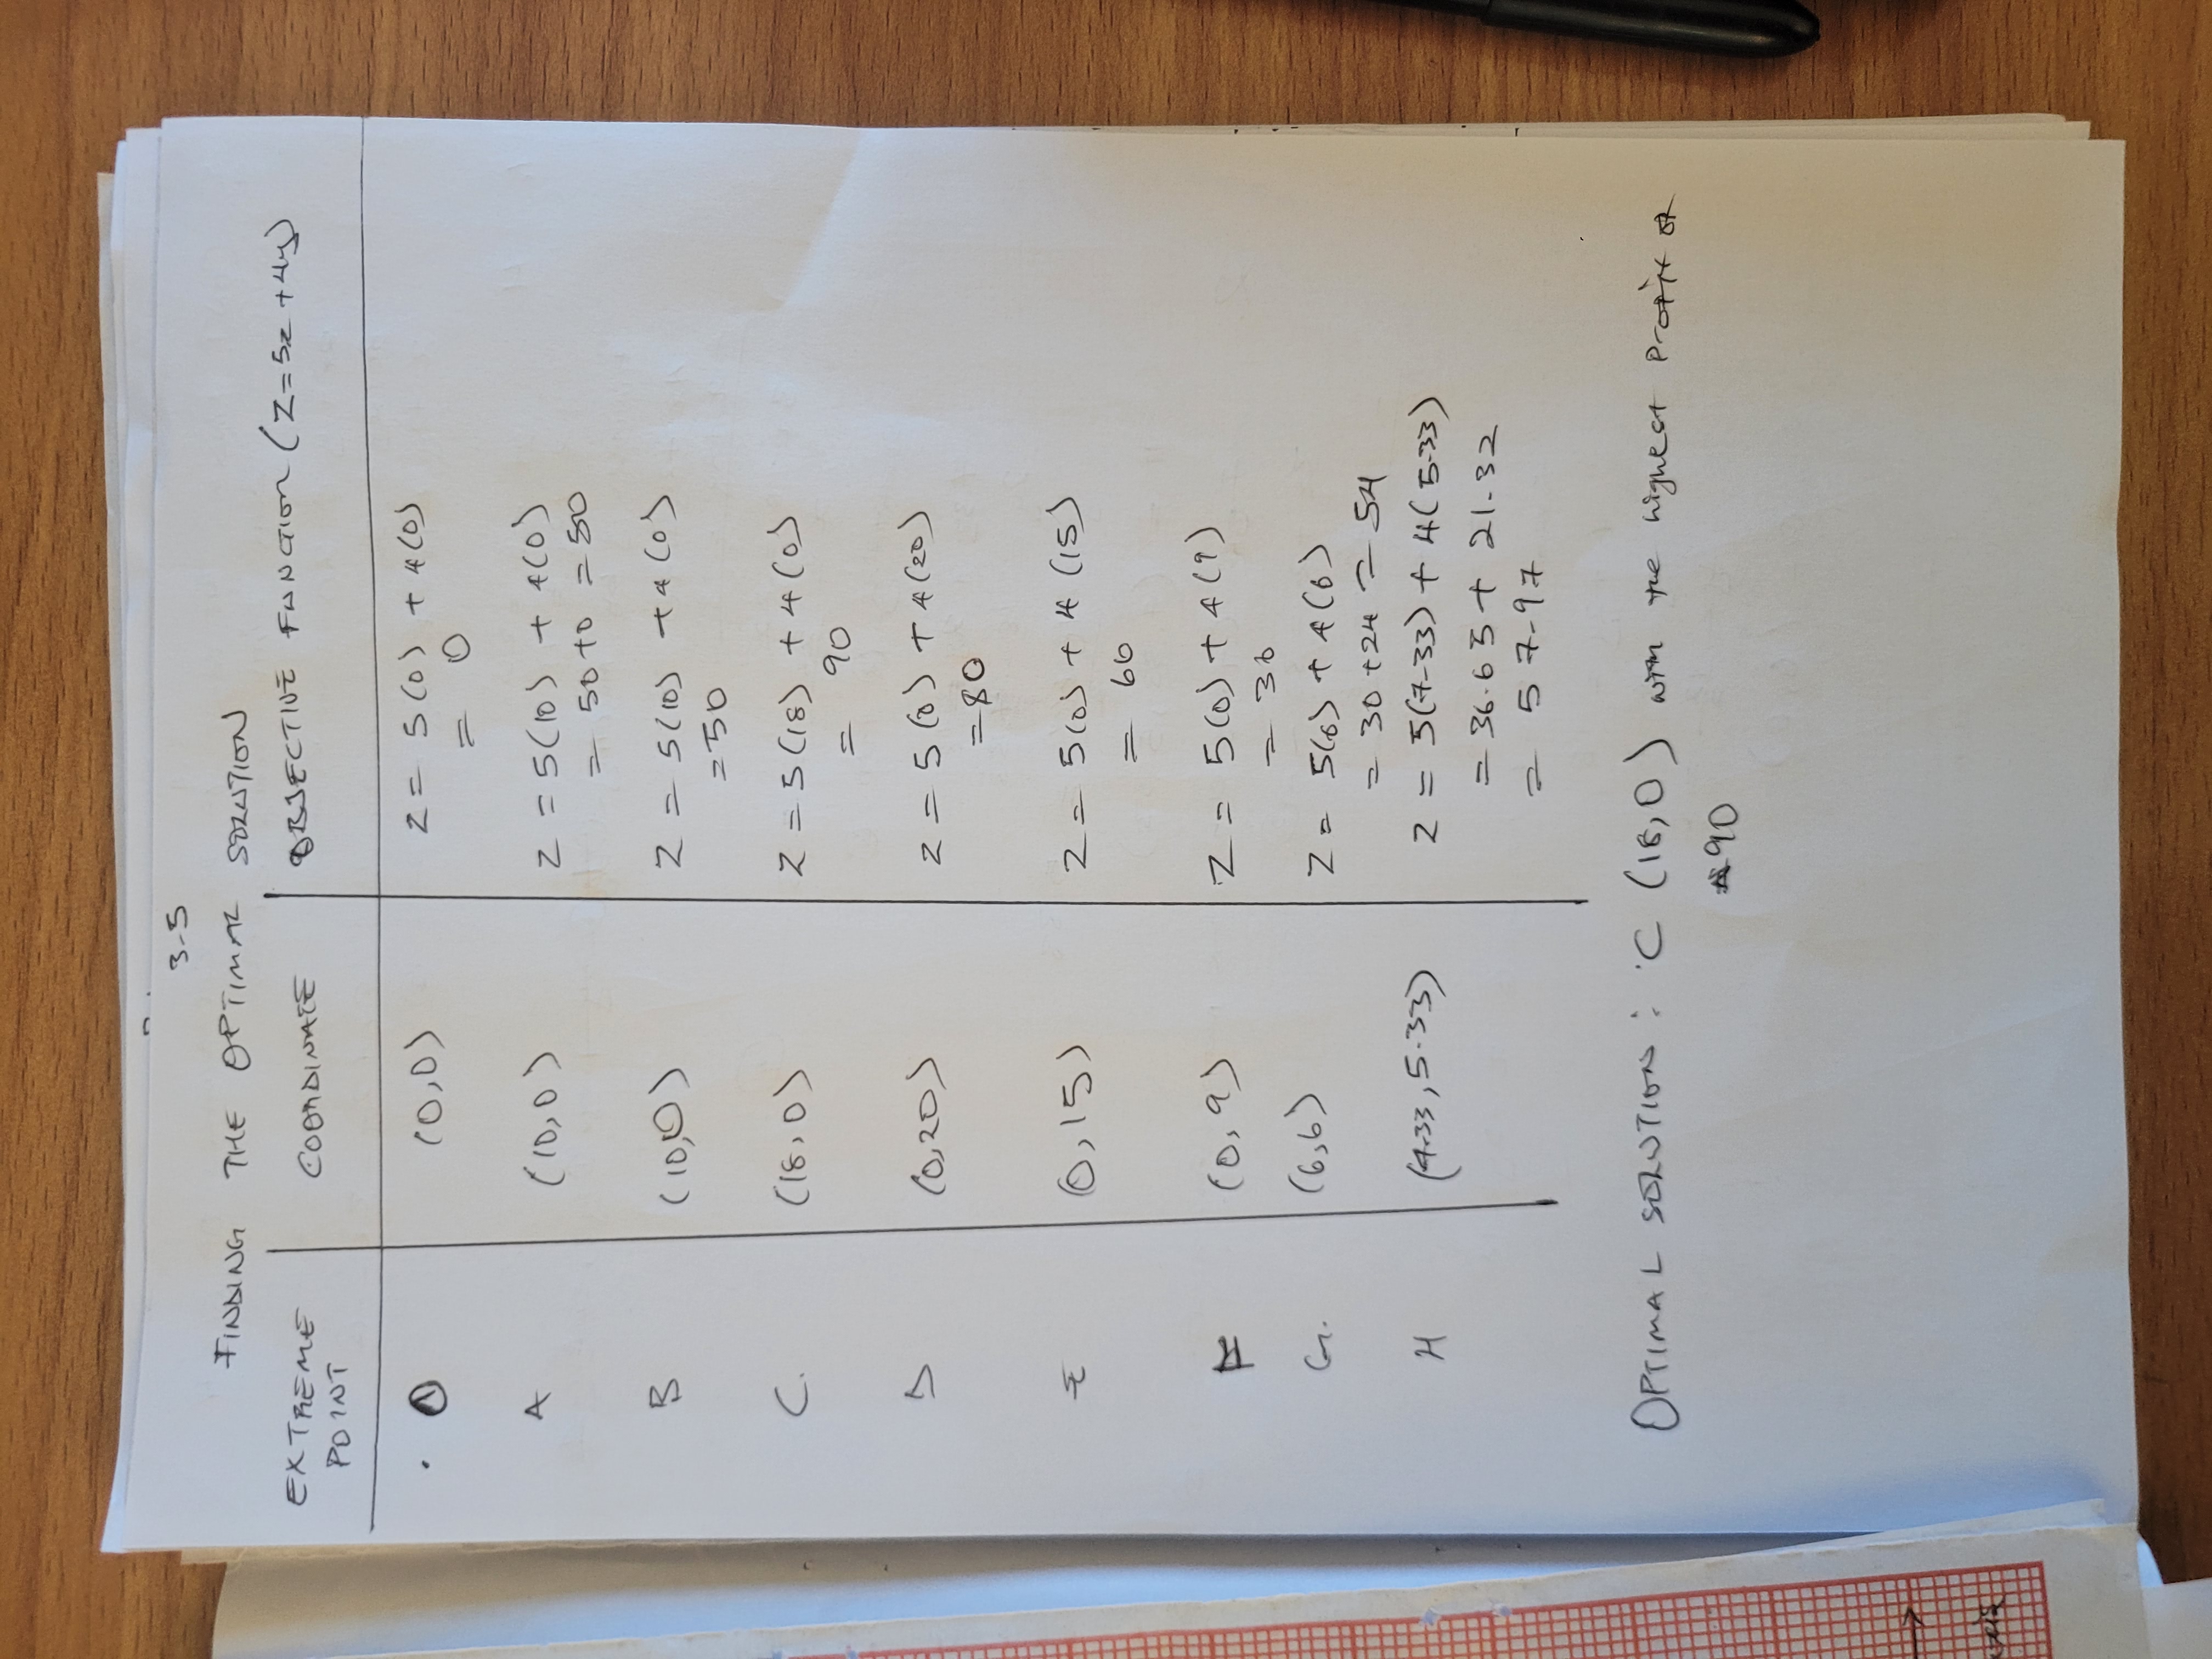 3-5
FINDING THE OPTIMAL SOLUTION
EXTREME POINT COORDINATE OBJECTIVE FUNCTION (Z=5x +4y)
O (0,0) Z = 5(0) + 4(0)
= 0
A (10,0) Z = 5(10) + 4(0)
= 50+0 = 50
B (10,0) Z = 5(10) +4(0)
=50
C. (18,0) Z = 5(18) + 4(0)
= 90
D (0,20) Z = 5(0) + 4(20)
=80
E (0,15) Z = 5(0) + 4(15)
= 60
F (0,9) Z = 5(0) + 4(9)
= 36
G. (6,6) Z = 5(6) + 4(6)
= 30 +24 = 54
H (7.33, 5.33) Z = 5(7.33) + 4(5.33)
= 36.65 + 21.32
= 57.97
OPTIMAL SOLUTION : C (18,0) with the highest Profit of
90